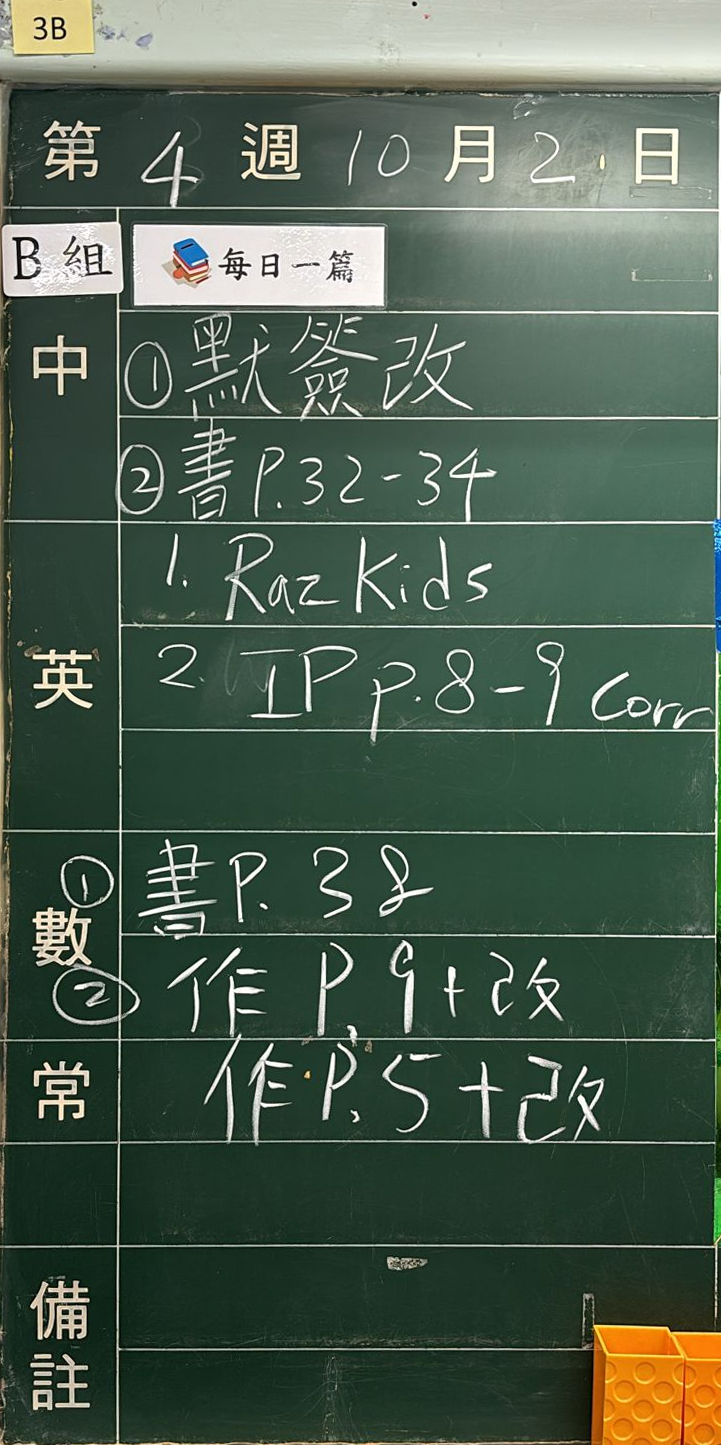 3B
第 4 週 10 月 2 日
B 組 每日一篇
中 ①默簽改
②書P.32-34
英 1. Raz Kids
2. IP p.8-9 Corr
數 ① 書P.38
② 作 P.9+改
常 作P.5+改
備註